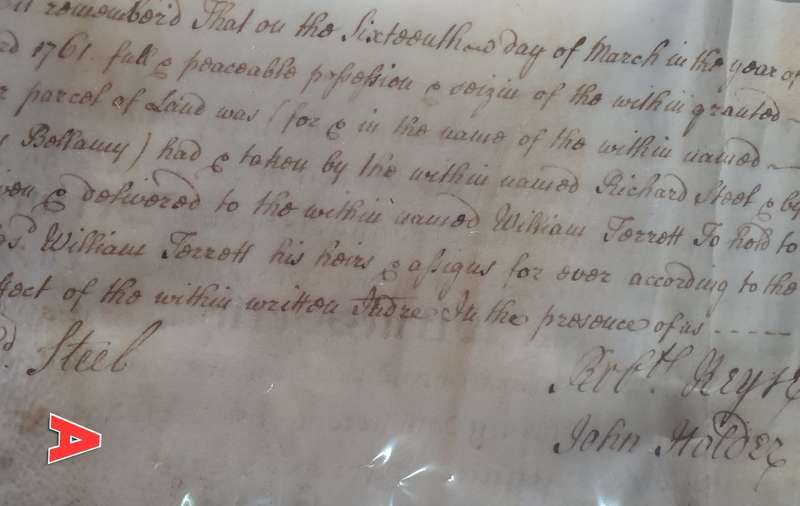 rememberd That on the Sixteenth day of March in the year of
1761 full & peaceable possession & seizin of the within granted
parcel of Land was (for & in the name of the within named
Bellamy) had & taken by the within named Richard Steel & by
& delivered to the within named William Terrett To hold to
sd. William Terrett his heirs & assigns for ever according to the
of the within written Indre In the presence of us -----
Steel
Keyse
John Holder
A